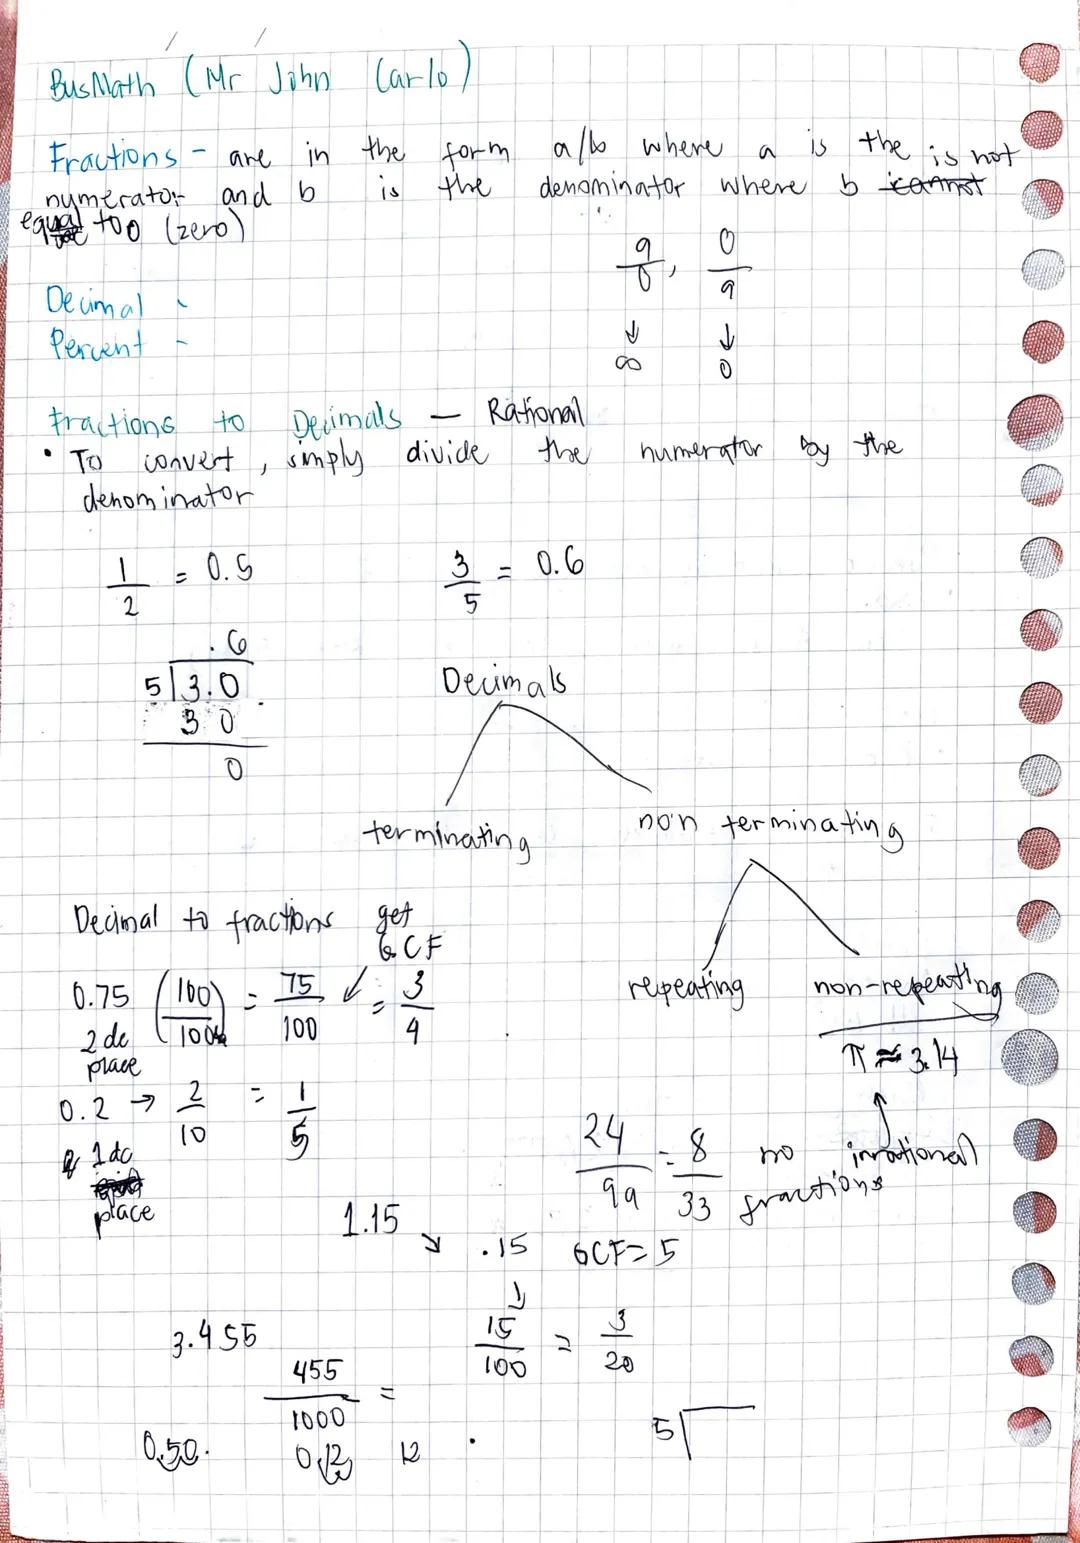 BusMath (Mr John Carlo)
Fractions - are in the form a/b where a is the
numerator and b is the denominator where b is not
equal to 0 (zero)
9/0, 0/9
↓ ↓
∞ 0
Decimal -
Percent -
Fractions to Decimals — Rational
• To convert, simply divide the numerator by the
denominator
1/2 = 0.5 3/5 = 0.6
.6
5 3.0
3 0
0
Decimals
terminating non terminating
repeating non-repeating
π ≈ 3.14
irrational
no fractions
Decimal to fractions get GCF
0.75 (100/100) = 75/100 = 3/4
2 dc
place
0.2 → 2/10 = 1/5
1 dc
place
24/99 = 8/33
1.15 ↘ .15 GCF = 5
↓
15/100 = 3/20
3.455
455/1000 =
5
0.50. 0.12 12